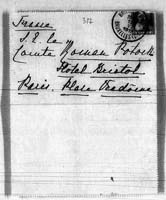 France
312
S. E. le
Comte Roman Potocki
Hotel Bristol
Paris. Place Vendôme